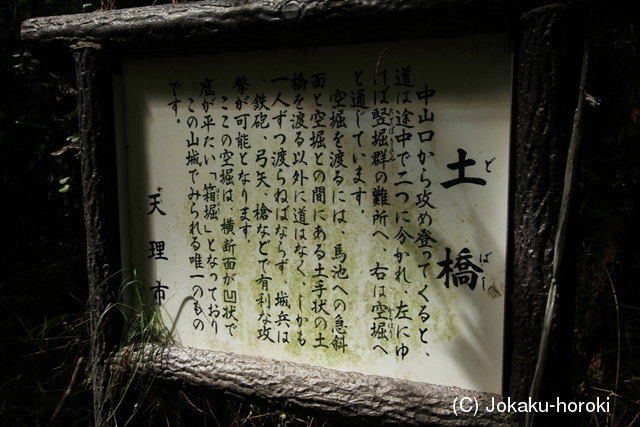 土橋
どばし
中山口から攻め登ってくると、
道は途中で二つに分かれ、左にゆ
けば竪堀群の難所へ、右は空堀へ
と通じています。
空堀を渡るには、馬池への急斜
面と空堀との間にある土手状の土
橋を渡る以外に道はなく、しかも
一人ずつ渡らねばならず、城兵は
、鉄砲、弓矢、槍などで有利な攻
撃が可能となります。
ここの空堀は、横断面が凹状で
底が平たい「箱堀」となっており
、この山城でみられる唯一のもの
です。
天理市
(C) Jokaku-horoki